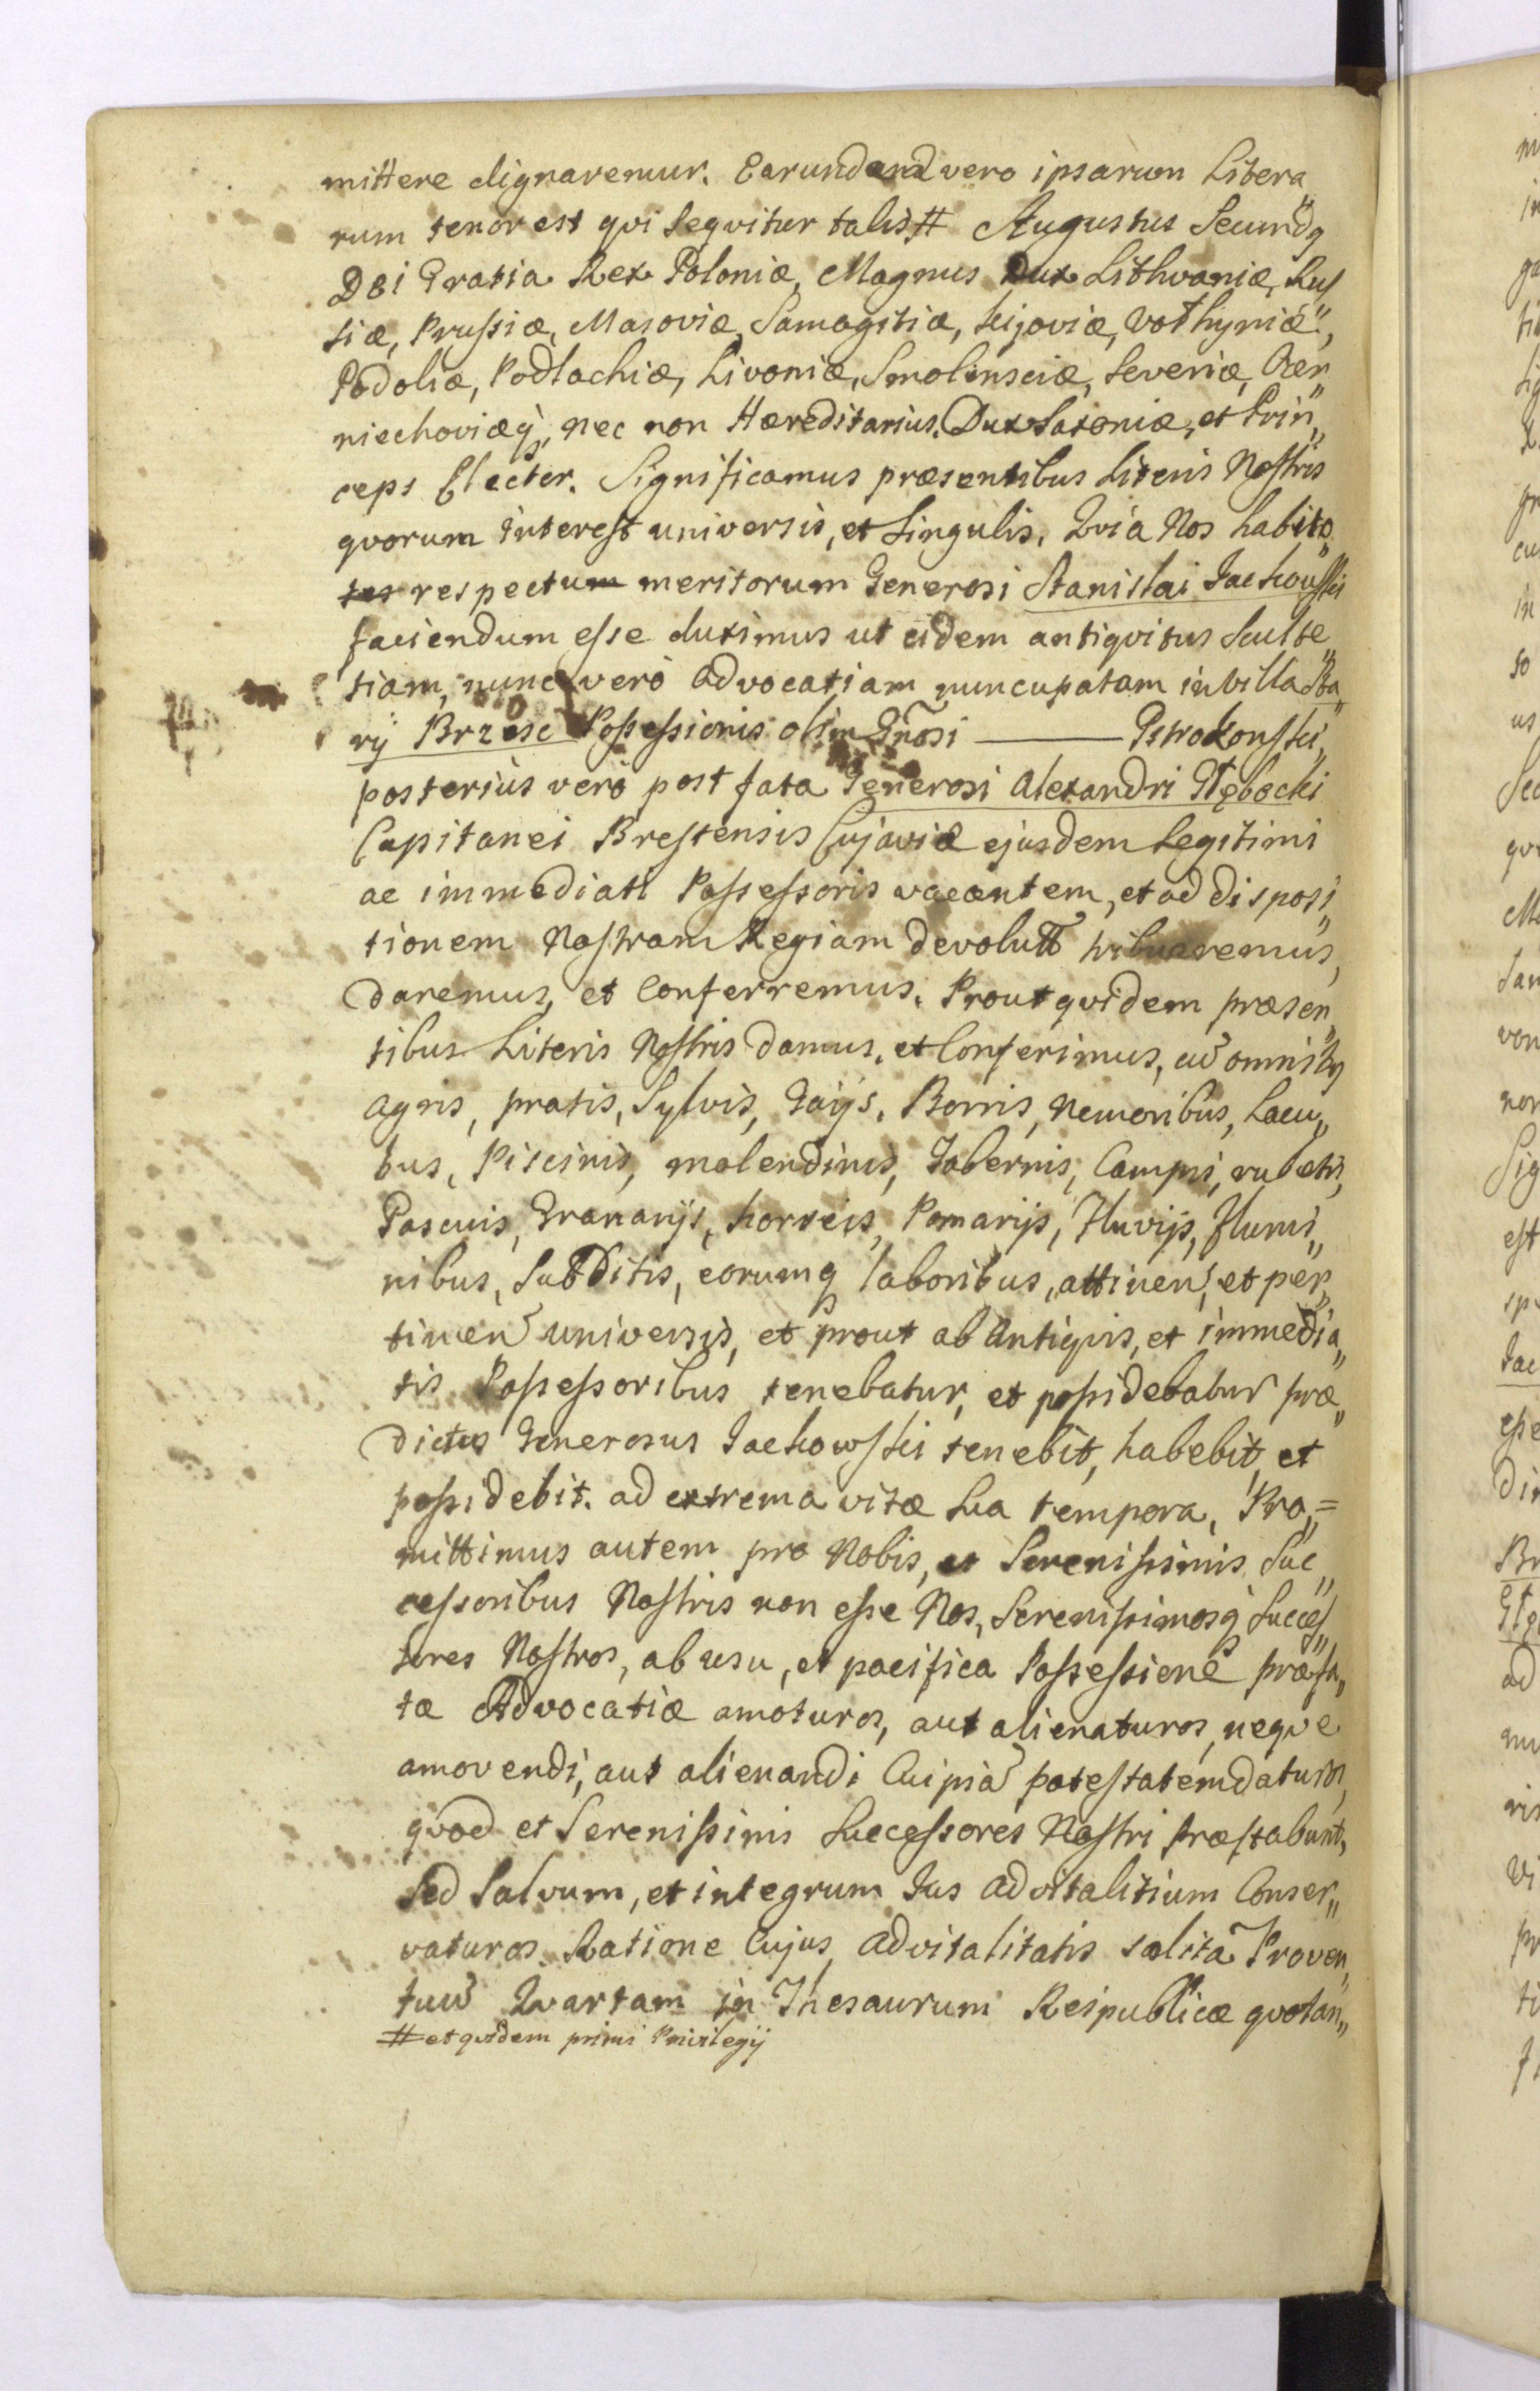 mittere dignaremur. Earundem vero ipsarum Litera„
rum tenor est qvi seqvitur talis # Augustus Secundq
DEI Gratia Rex Poloniæ, Magnus Dux Lithvaniæ, Rus„
siæ, Prussiæ, Masoviæ, Samogitiæ, Kijoviæ, Vołhyniæ,
Podoliæ, Podlachiæ, Livoniæ, Smolensciæ, Severiæ, Czer„
niechoviæq, nec non Hæreditarius Dux Saxoniæ, et Prin„
ceps Elector. Significamus præsentibus Literis Nostris
qvorum interest universis, et Singulis, Qvia Nos habito„
respectum meritorum Generosi Stanislai Jachowski
faciendum esse duximus ut eidem antiqvitus Sculte„
tiam, nunc vero Advocatiam nuncupatam in Villa Sta„
ry Brzesc Possessionis olim Gnosi ——— Pstrokonski,
posterius vero post fata Generosi Alexandri Głębocki
Capitanei Brestensis Cujaviæ ejusdem Legitimi
ac immediati Possessoris vacantem, et ad disposi„
tionem Nostram Regiam devolut tribueremus,
Daremus, et Conferremus. Prout qvidem præsen„
tibus Literis Nostris damus, et Conferimus, cu omnibq
Agris, pratis, Sylvis, Gaijs, Borris, Nemoribus, Lacu„
bus, Piscinis, molendinis, Tabernis, Campis, rubetis,
Pascuis, Granarijs, horreis, Pomarijs, Fluvijs, flumi„
nibus, Subditis, eorumq laboribus, attinen, et per„
tinen universis, et prout ab Antiqvis, et immedia„
tis Possessoribus tenebatur, et possidebatur præ„
dictus Generosus Jachowski tenebit, habebit, et
possidebit. ad extrema vitæ Sua tempora, Pro„=
mittimus autem pro Nobis, et Serenissimis Suc„
cessoribus Nostris non esse Nos, Serenissimosq Succes„
sores Nostros, ab usu, et pacifica Possessione præfa„
tæ Advocatiæ amoturos, aut alienaturos, neqve
amovendi, aut alienandi Cuipia potestatem daturos,
qvod et Serenissimis Successores Nostri præstabunt,
Sed Salvum, et integrum Jus Advitalitium Conser„
vaturos. Ratione Cujus Advitalitatis solita Proven„
tuu Qvartam in Thesaurum Reipublicæ qvotan„
# et qvidem primi Privilegij